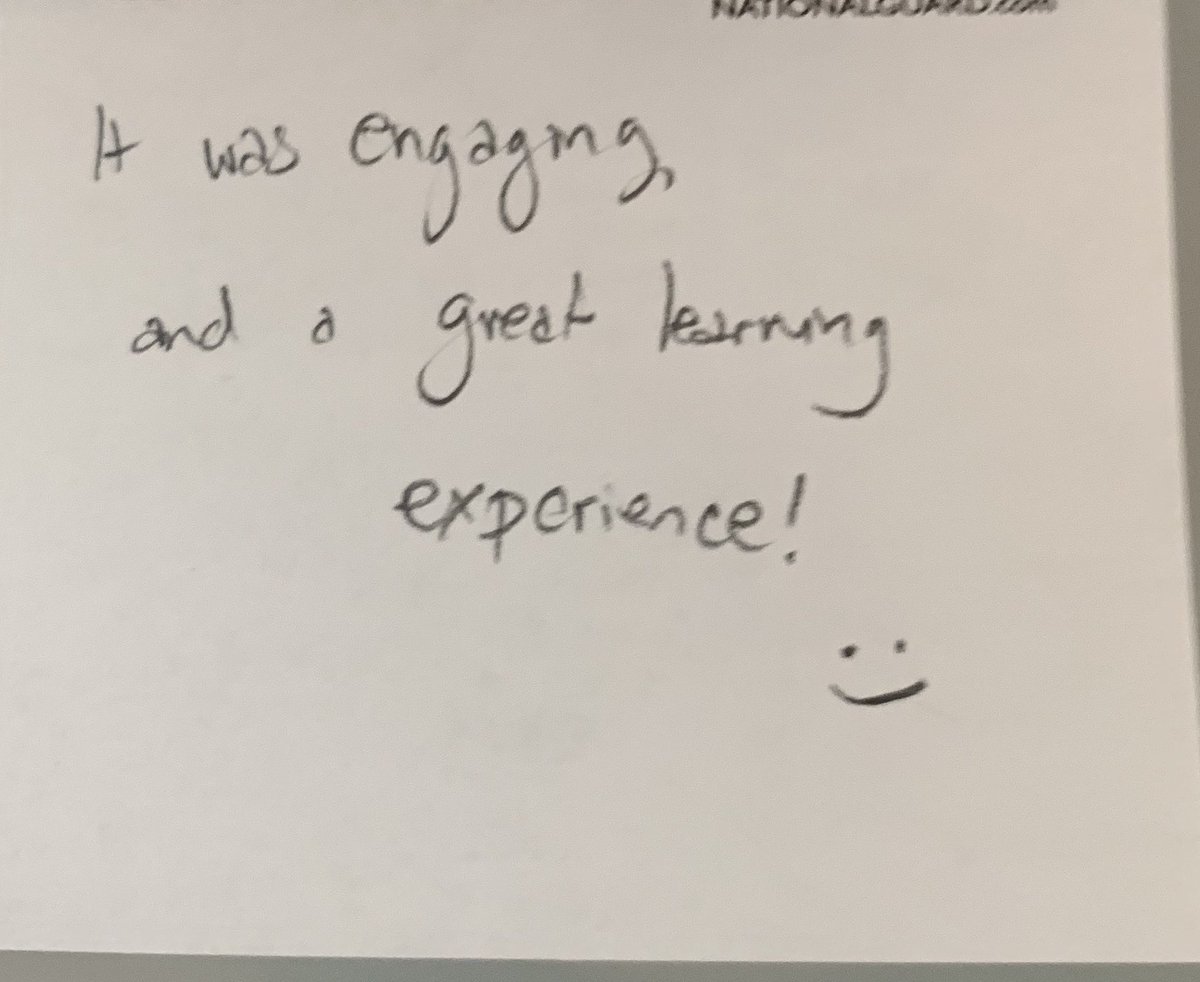 NATIONALGUARD.com
It was engaging,
and a great learning
experience!